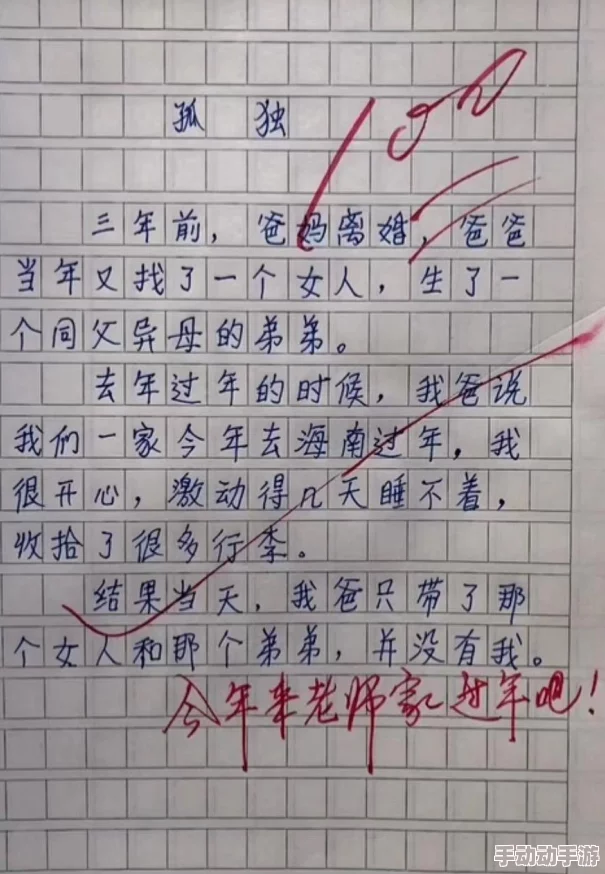 100
孤 独
三年前，爸妈离婚，爸爸
当年又找了一个女人，生了一
个同父异母的弟弟。
去年过年的时候，我爸说
我们一家今年去海南过年，我
很开心，激动得几天睡不着，
收拾了很多行李。
结果当天，我爸只带了那
个女人和那个弟弟，并没有我。
今年来老师家过年吧！
手动动手游